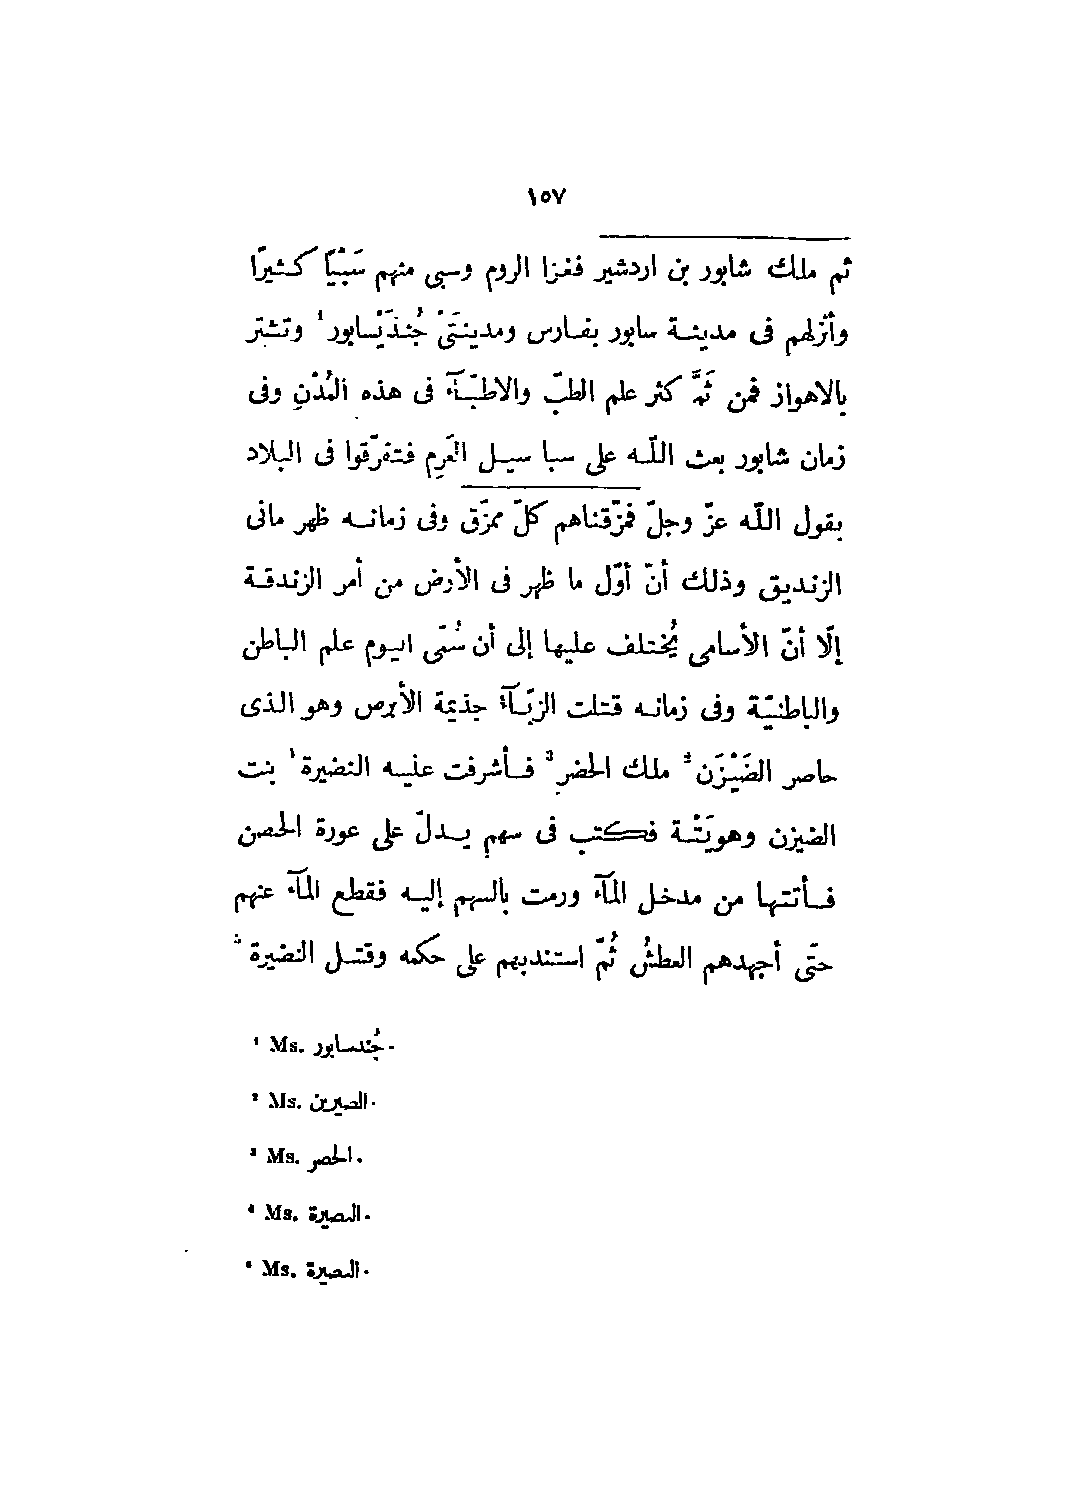 ١٥٧
ثم ملك شابور بن اردشير فغزا الروم وسبى منهم سَبْيًا كـثيرًا
وأنزلهم فى مدينـة سابور بفـارس ومدينـتَىْ جُنْدَيْسابور¹ وتشتر
بالاهواز فمن ثَمَّ كثر علم الطبّ والاطبّـآء فى هذه المُدْنِ وفى
زمان شابور بعث اللّـه على سبا سيـل العَرِم فتفرّقوا فى البلاد
بقول اللّه عزّ وجلّ فمزّقناهم كلّ ممزّق وفى زمانـه ظهر مانى
الزنديق وذلك أنّ أوّل ما ظهر فى الأرض من أمر الزندقـة
إلّا أنّ الأسامى يُختلف عليها إلى أن سُمّى اليـوم علم الباطن
والباطنيّة وفى زمانه قتلت الزبّـآء جذيمة الأبرص وهو الذى
حاصر الضَيْزَن² ملك الحضر³ فـأشرفت عليـه النضيرة⁴ بنت
الضيزن وهويَتْـهُ فكتب فى سهم يـدلّ على عورة الحصن
فـأتتها من مدخل المآء ورمت بالسهم إليـه فقطع المآء عنهم
حتّى أجهدهم العطشُ ثُمّ استنـ‍ـزلهم على حكمه وقتـل النضيرة⁵
¹ Ms. جُندسابور.
² Ms. الصيرين.
³ Ms. الحصر.
⁴ Ms. النصيرة.
⁵ Ms. النصيرة.